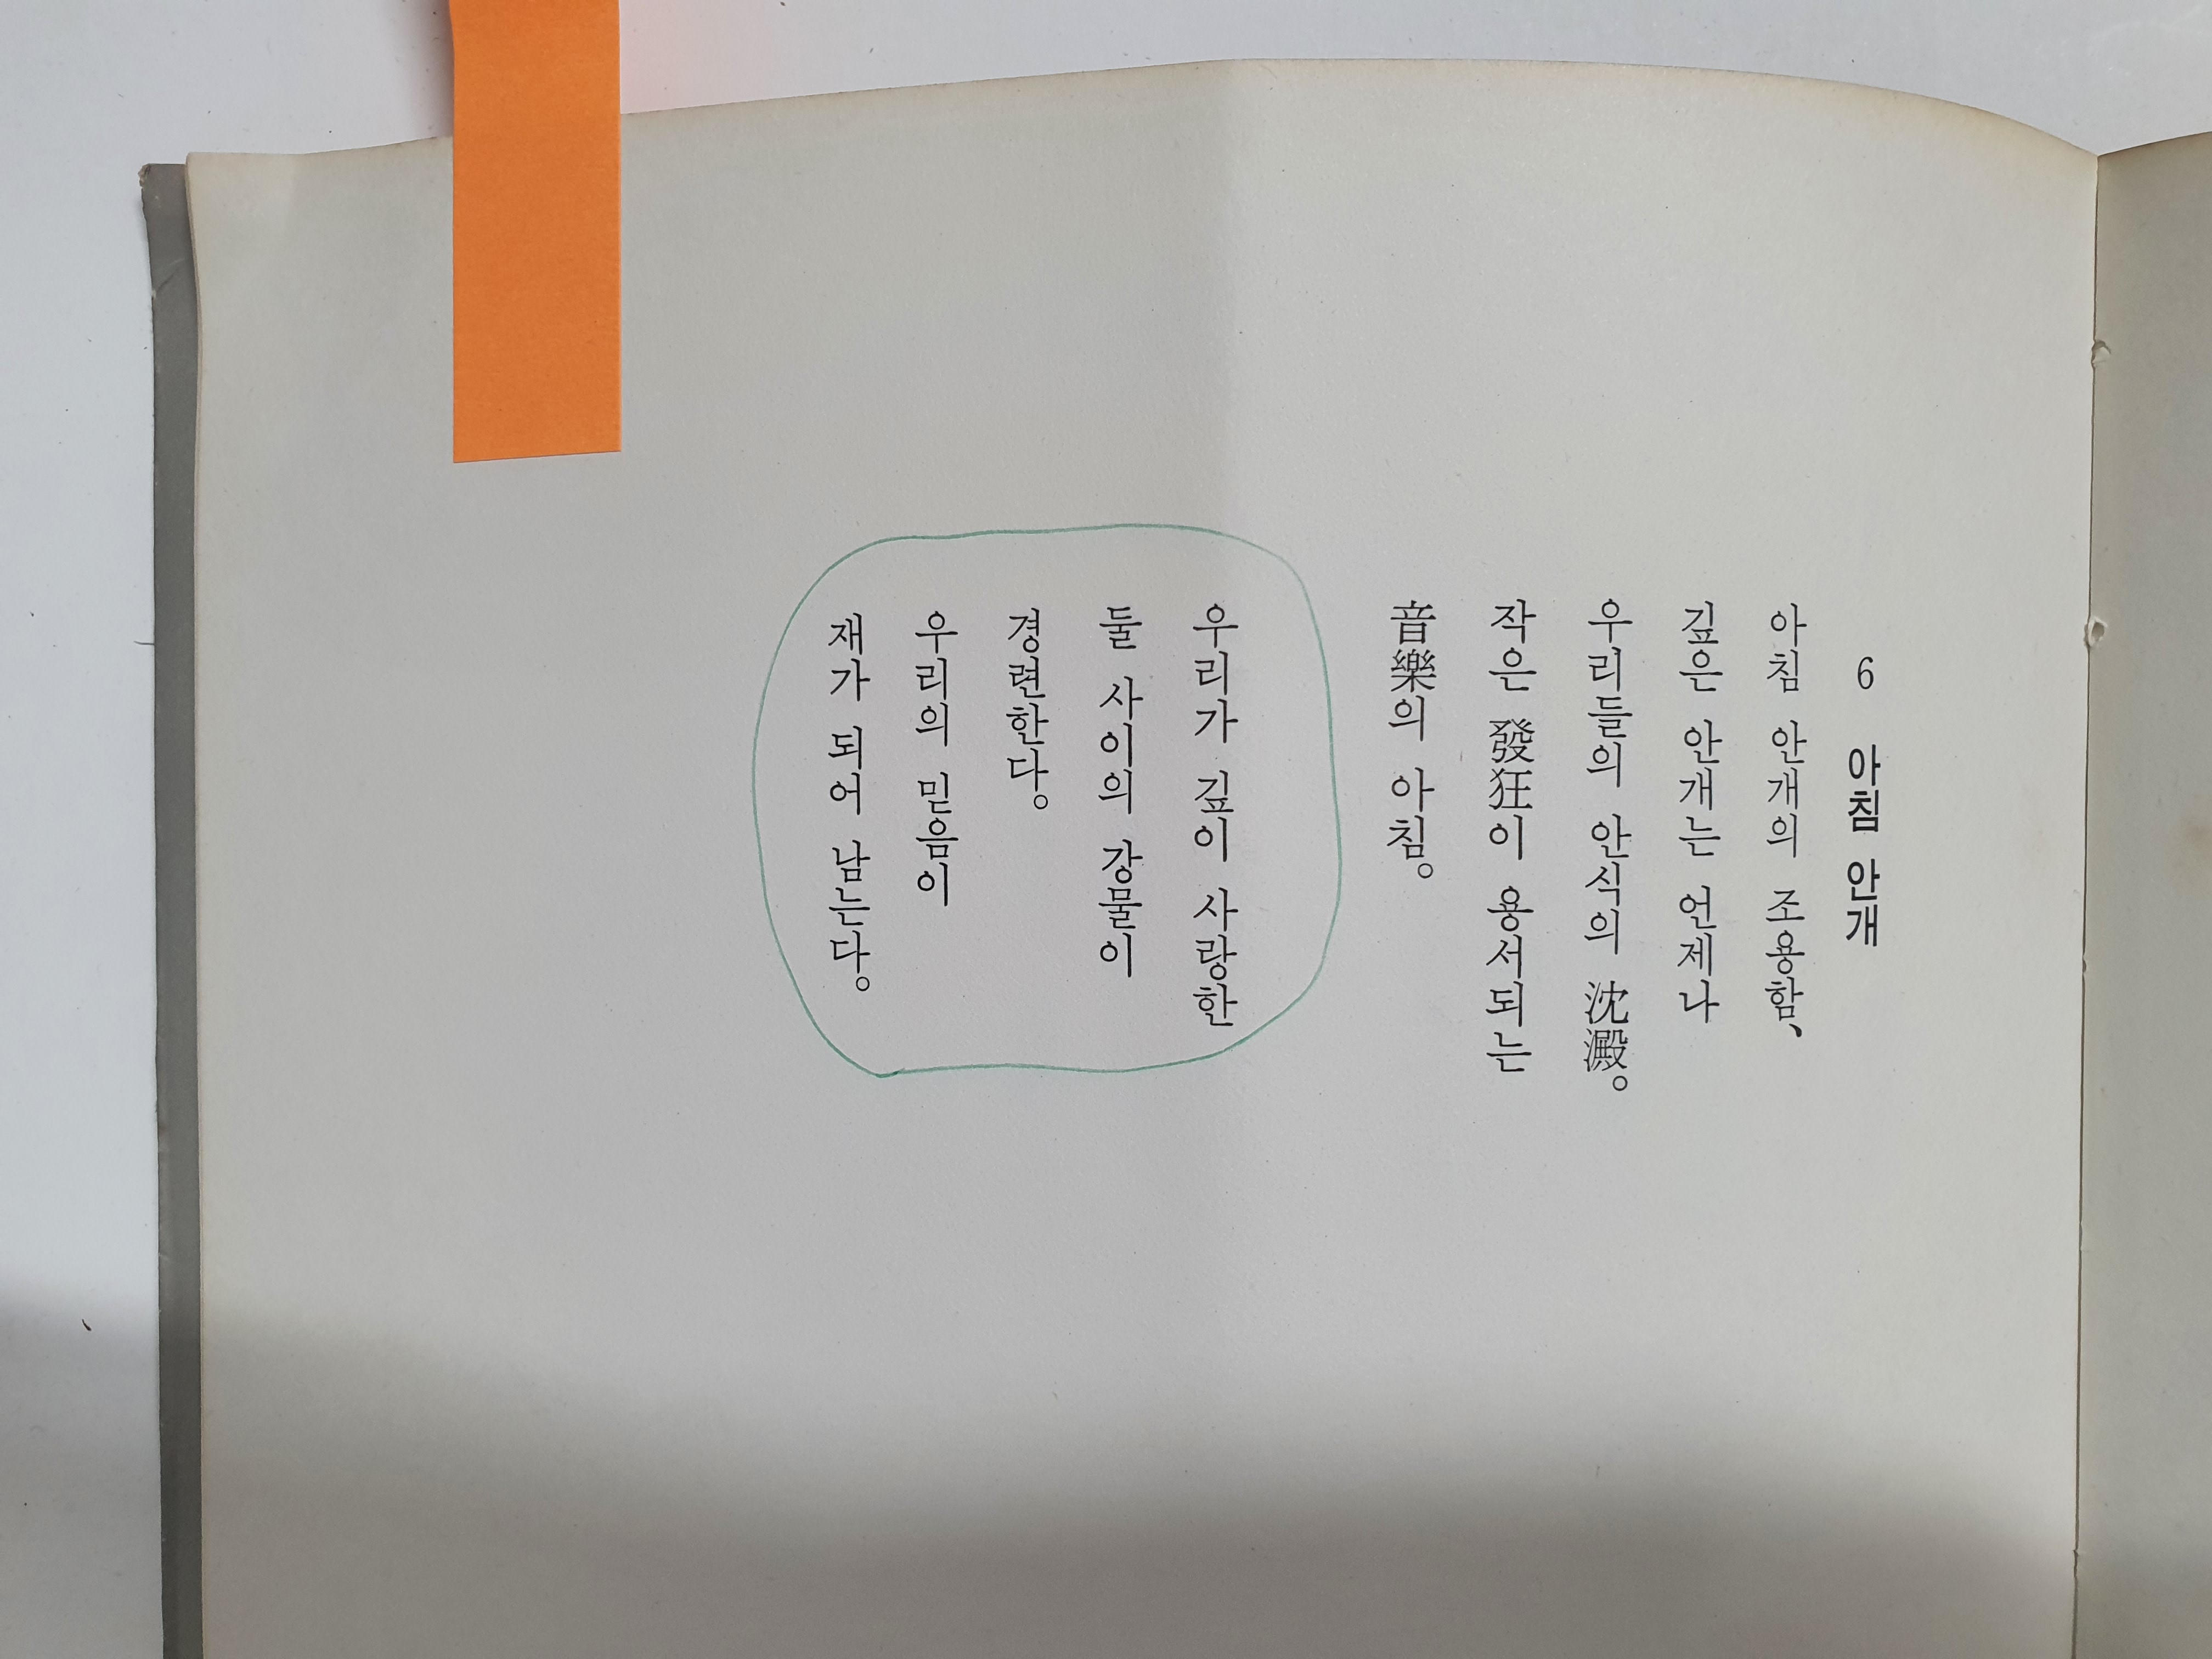 6 아침 안개
아침 안개의 조용함、
깊은 안개는 언제나
우리들의 안식의 沈澱。
작은 發狂이 용서되는
音樂의 아침。
우리가 깊이 사랑한
둘 사이의 강물이
경련한다。
우리의 믿음이
재가 되어 남는다。